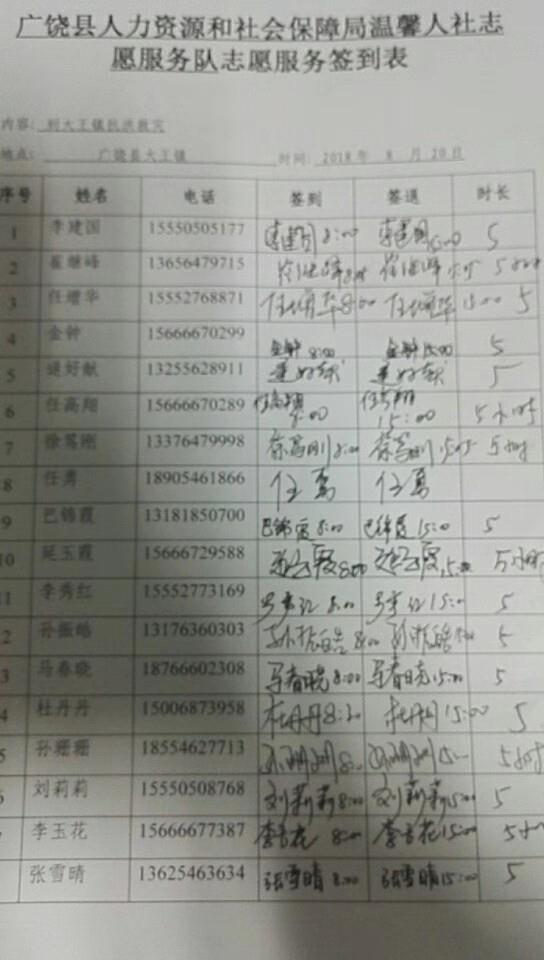 广饶县人力资源和社会保障局温馨人社志
愿服务队志愿服务签到表
内容: 到大王镇抗洪救灾
地点: 广饶县大王镇 时间: 2018年 8 月 20日
序号 姓名 电话 签到 签退 时长
1 李建国 15550505177 李建国 8:00 李建国 5
2 崔继峰 13656479715 崔继峰 崔继峰 5
3 任增华 15552768871 任增华 8:00 任增华 15:00 5
4 金钟 15666670299 金钟 8:00 金钟 15:00 5
5 好献 13255628911 好献 好献 5
6 任高翔 15666670289 任高翔 8:00 任高翔 15:00 5小时
7 徐笃刚 13376479998 徐笃刚 8:00 徐笃刚 5小时
8 任勇 18905461866 任勇 任勇
9 巴锦霞 13181850700 巴锦霞 8:00 巴锦霞 15:00 5
10 延玉霞 15666729588 延玉霞 8:00 延玉霞 15:00 5小时
11 李秀红 15552773169 李秀红 8:00 李秀红 15:00 5
2 孙振皓 13176360303 孙振皓 8:00 孙振皓 5
3 马春晓 18766602308 马春晓 8:00 马春晓 15:00 5
4 杜丹丹 15006873958 杜丹丹 杜丹丹 15:00 5
5 孙珊珊 18554627713 孙珊珊 孙珊珊 5小时
6 刘莉莉 15550508768 刘莉莉 8:00 刘莉莉 15:00 5
李玉花 15666677387 李玉花 8:00 李玉花 15:00 5
张雪晴 13625463634 张雪晴 8:00 张雪晴 15:00 5